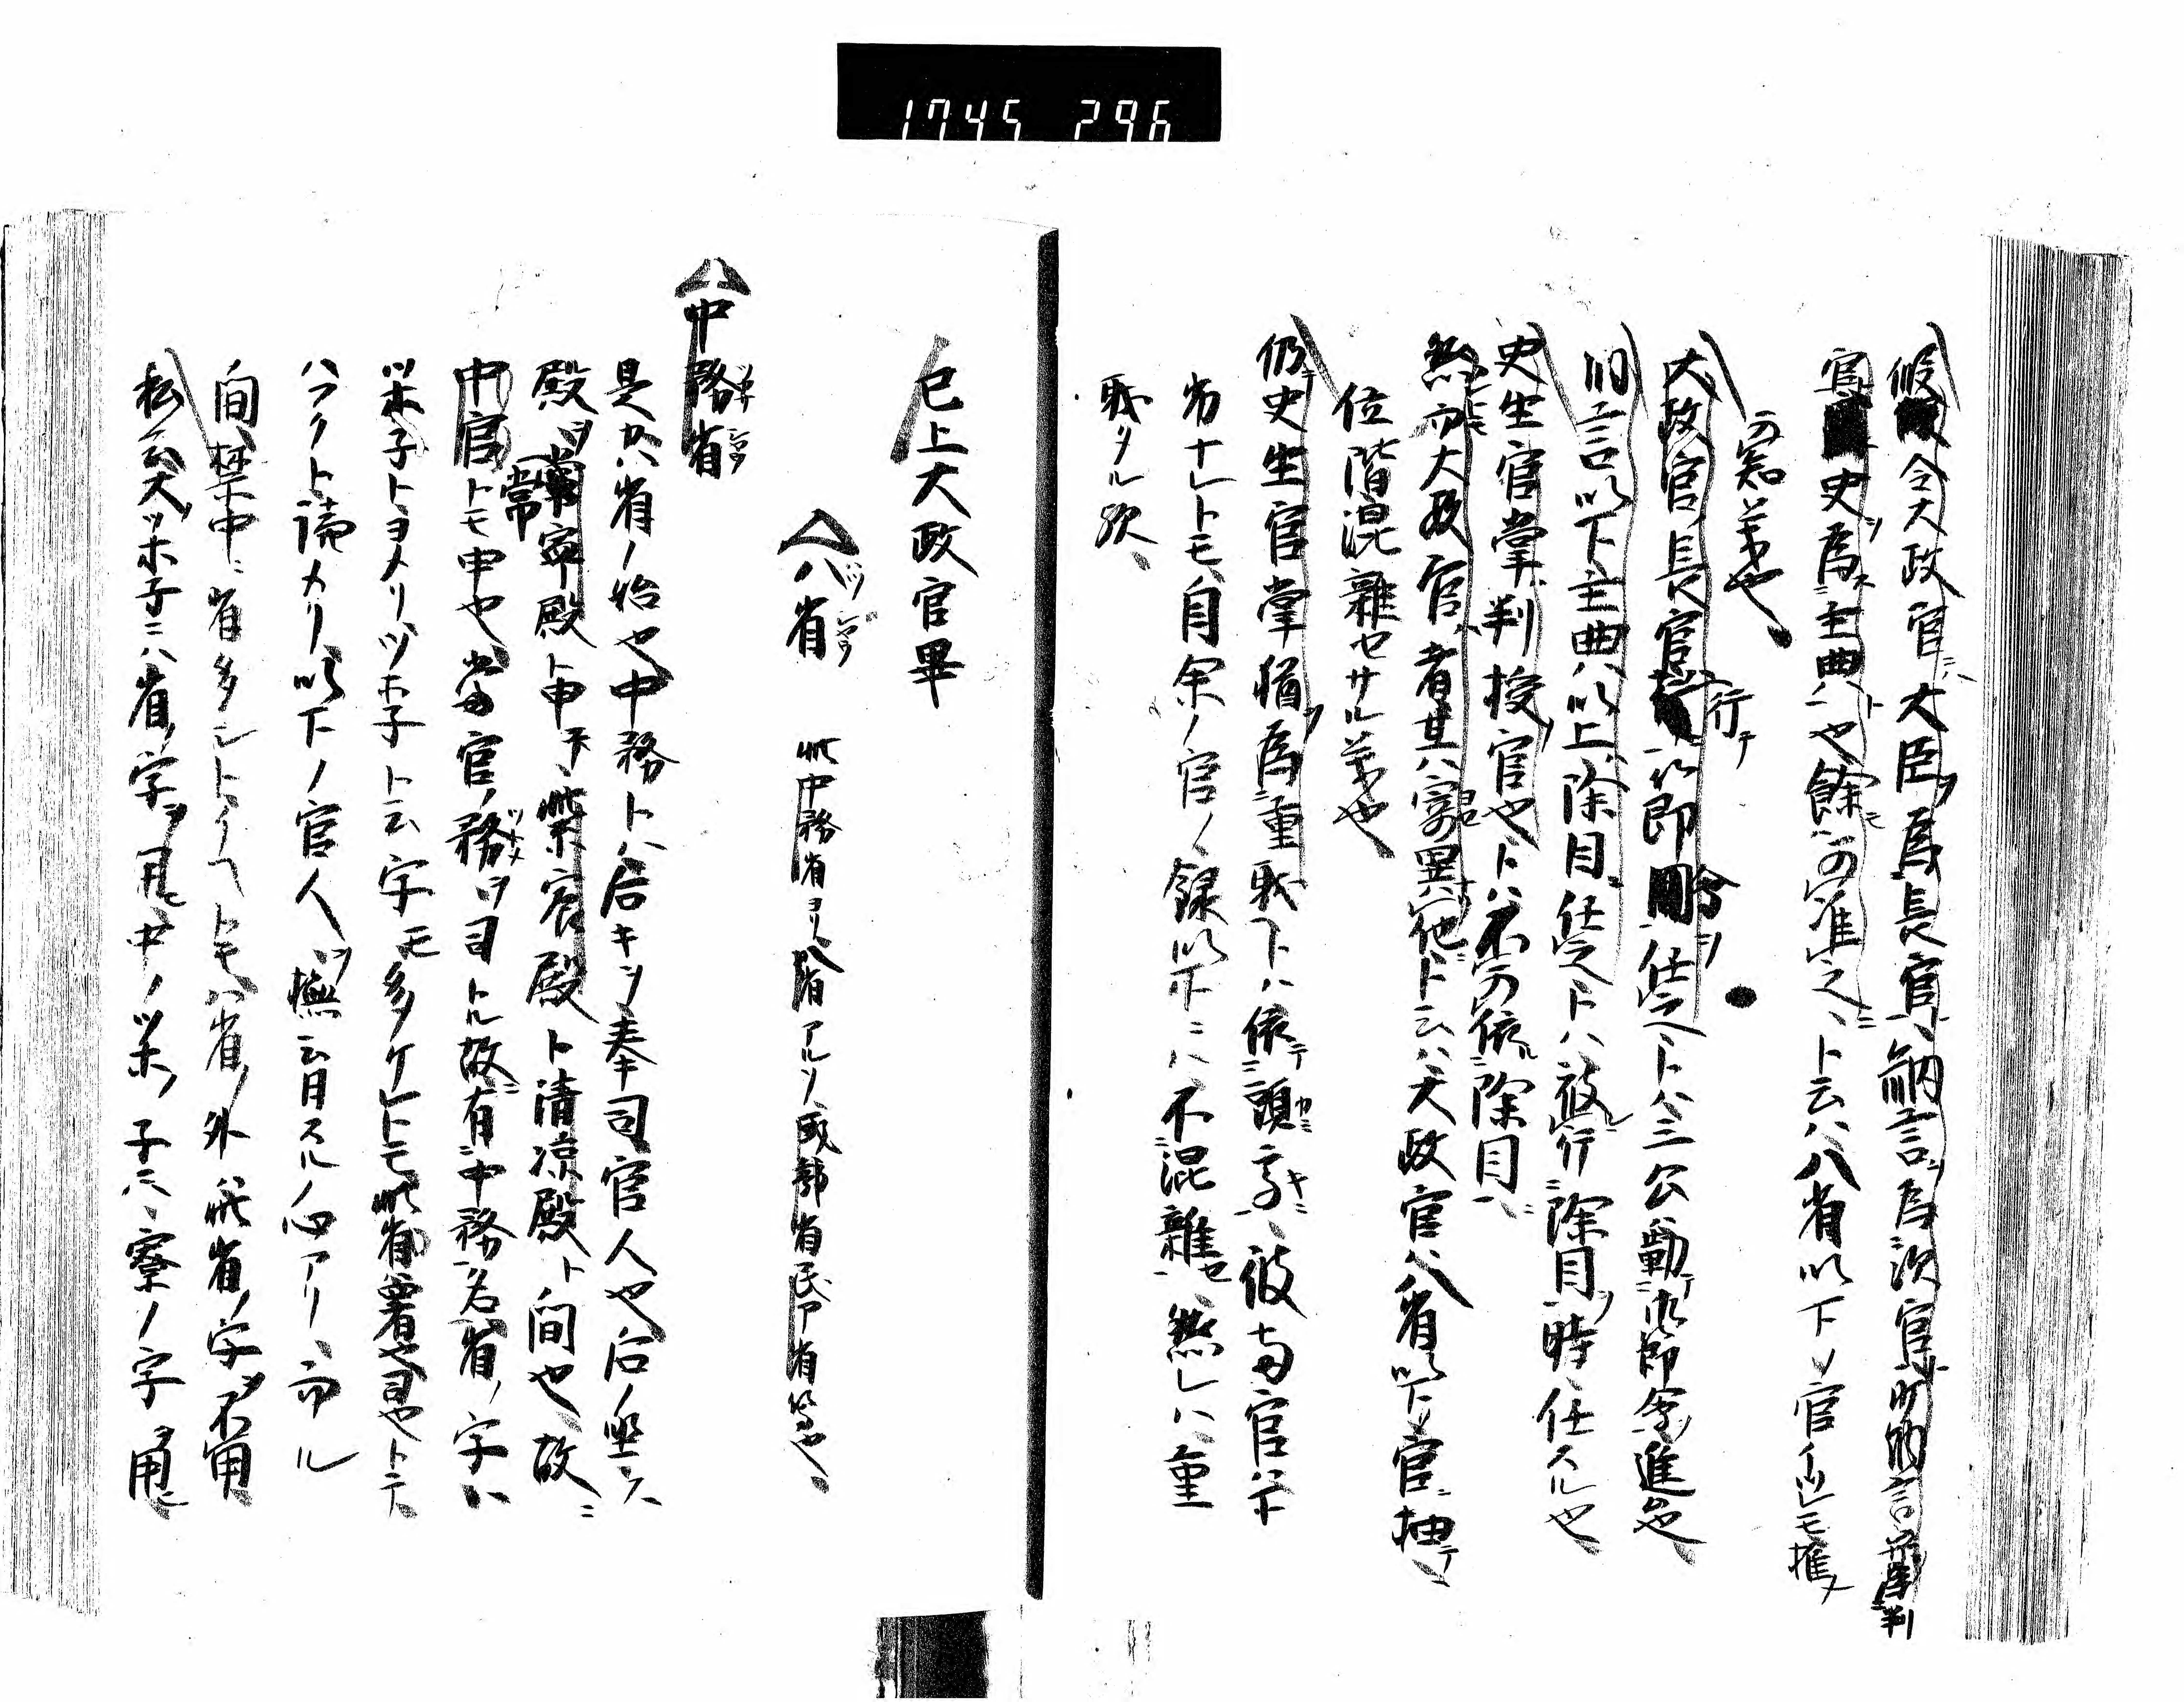 1745 296
仮令大政官ニハ大臣ヲ為長官、納言ヲ為次官、少納言并弁判
官史ヲ為主典ト也餘モ可准之ト云ハ八省以下ノ官イツレモ推メ
可知義也、
大政官長官行テ即令仕之ト八三公勤テ即令進也、
納言以下主典以上除目仕之トハ被行除目ノ時仕スル也
史生官掌判授官也トハ不可依除目
然而大政官者其寄異他ニト云ハ大政官八省以下ノ官ニ抽テ
位階混雑セサル義也
仍史生官掌猶為重職トハ依テ頭ニ彼両官ハ下
劣ナレトモ自余ノ官ノ録以下ニハ不混雑セ、然レハ重
職タル欤、
已上大政官畢
八省 此中務省ヨリ八省アルソ式部省民ア省等也、
中務省
是カ八省ノ始也中務トハ后キサ奉司官人也后ノ
殿ヲ常寧殿ト申テ紫宸殿ト清凉殿ト間也故ニ
中官トモ申也當官ノ務ヲ司トル故ニ有中務名省ノ字ハ
ツホ子トヨメリツホ子ト云字モ多ケレトモ此省署也司也トテ
ハフクト読カリ以下ノ官人ヲ撫云月スル心アリ、而ル
間禁中ニ省多シトイヘトモ八省ノ外此省ノ字ヲ不用
私云大ツホ子ニハ省ノ字ヲ用中ノツホノ子ニハ寮ノ字ヲ用